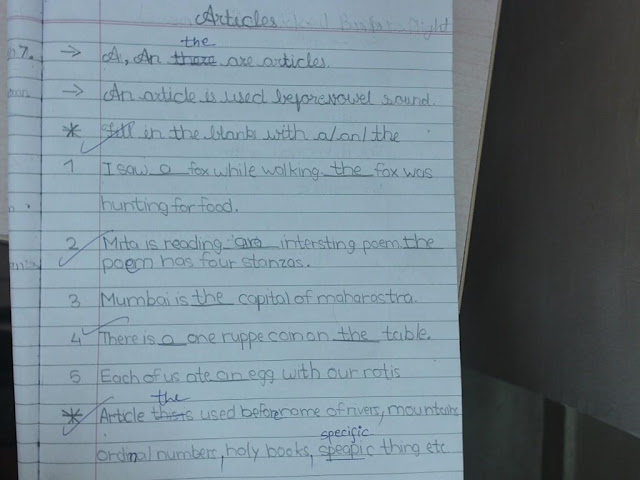 Articles
→ A, An the there are articles.
→ An article is used before vowel sound.
* Fill in the blanks with a/an/the
1 I saw a fox while walking. the fox was
hunting for food.
2 Mita is reading an intersting poem. the
poem has four stanzas.
3 Mumbai is the capital of maharastra.
4 There is a one ruppe coin on the table.
5 Each of us ate an egg with our rotis
* Article the this used before name of rivers, mountains
ordinal numbers, holy books, specific speapic thing etc